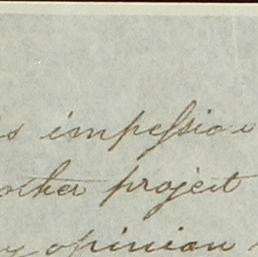 is impeſsio
other project
opinion